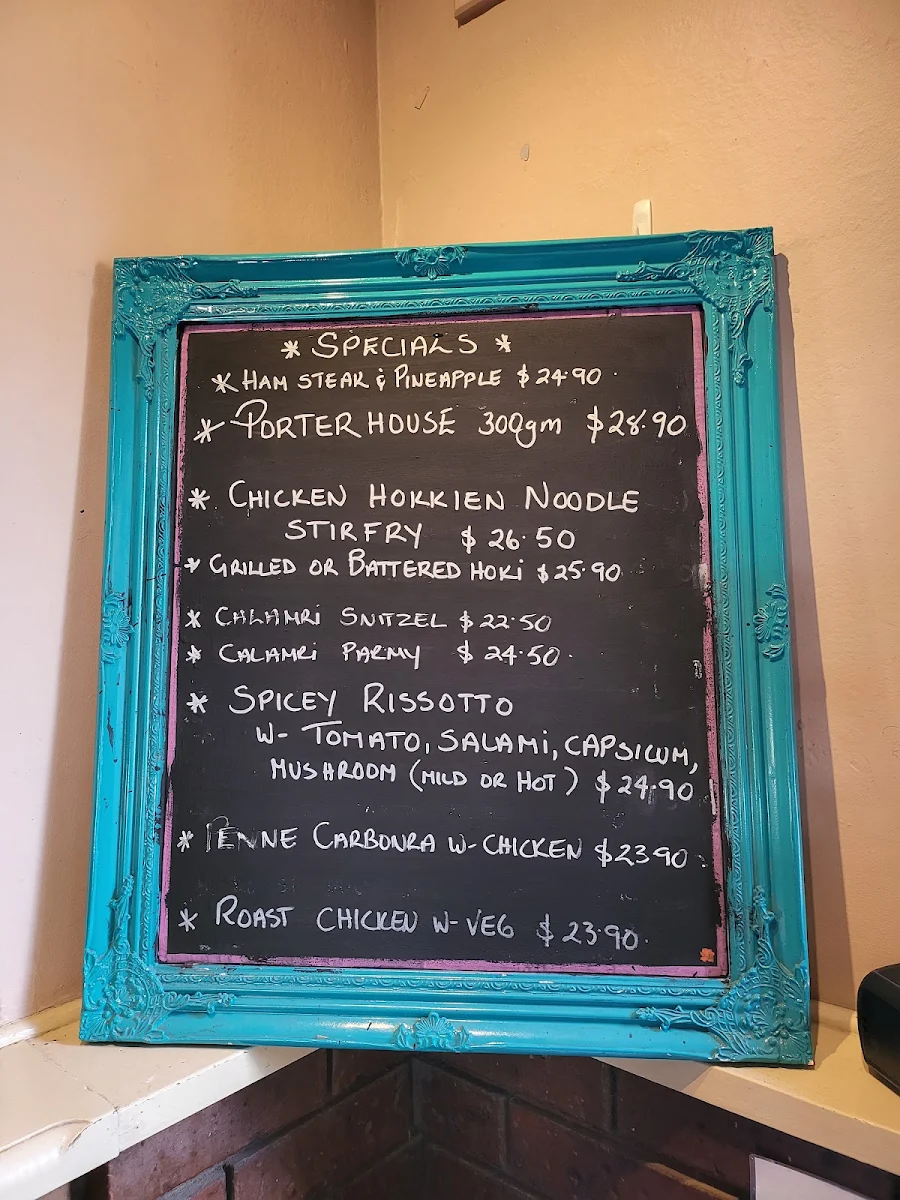 * SPECIALS *
* HAM STEAK & PINEAPPLE $24.90.
* PORTERHOUSE 300gm $28.90
* CHICKEN HOKKIEN NOODLE
STIRFRY $26.50
* GRILLED OR BATTERED HOKI $25.90
* CALAMRI SNITZEL $22.50
* CALAMRI PARMY $24.50.
* SPICEY RISSOTTO
W- TOMATO, SALAMI, CAPSICUM,
MUSHROOM (MILD OR HOT) $24.90
* PENNE CARBONRA W-CHICKEN $23.90
* ROAST CHICKEN W-VEG $23.90.